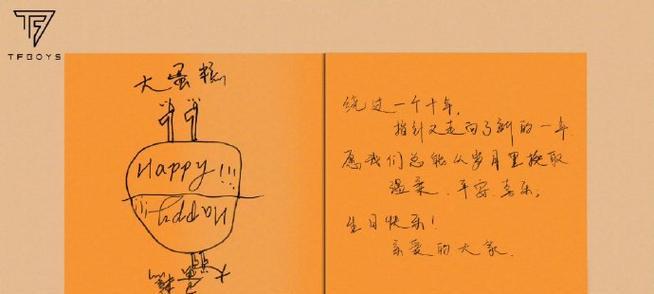 TFBOYS
大蛋糕
Happy!!!
Happy!!!
大蛋糕
绕过一个十年,
指针又走向了新的一年
愿我们总能从岁月里换取
温柔、平安、喜乐。
生日快乐!
亲爱的大家.